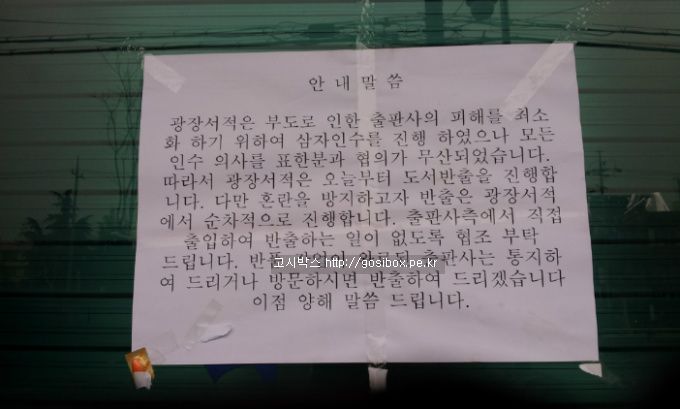 안 내 말 씀
광장서적은 부도로 인한 출판사의 피해를 최소
화 하기 위하여 삼자인수를 진행 하였으나 모든
인수 의사를 표한분과 협의가 무산되었습니다.
따라서 광장서적은 오늘부터 도서반출을 진행합
니다. 다만 혼란을 방지하고자 반출은 광장서적
에서 순차적으로 진행합니다. 출판사측에서 직접
출입하여 반출하는 일이 없도록 협조 부탁
드립니다. 반품 출판사는 통지하
고시박스 http://gosibox.pe.kr
여 드리거나 방문하시면 반출하여 드리겠습니다
이점 양해 말씀 드립니다.